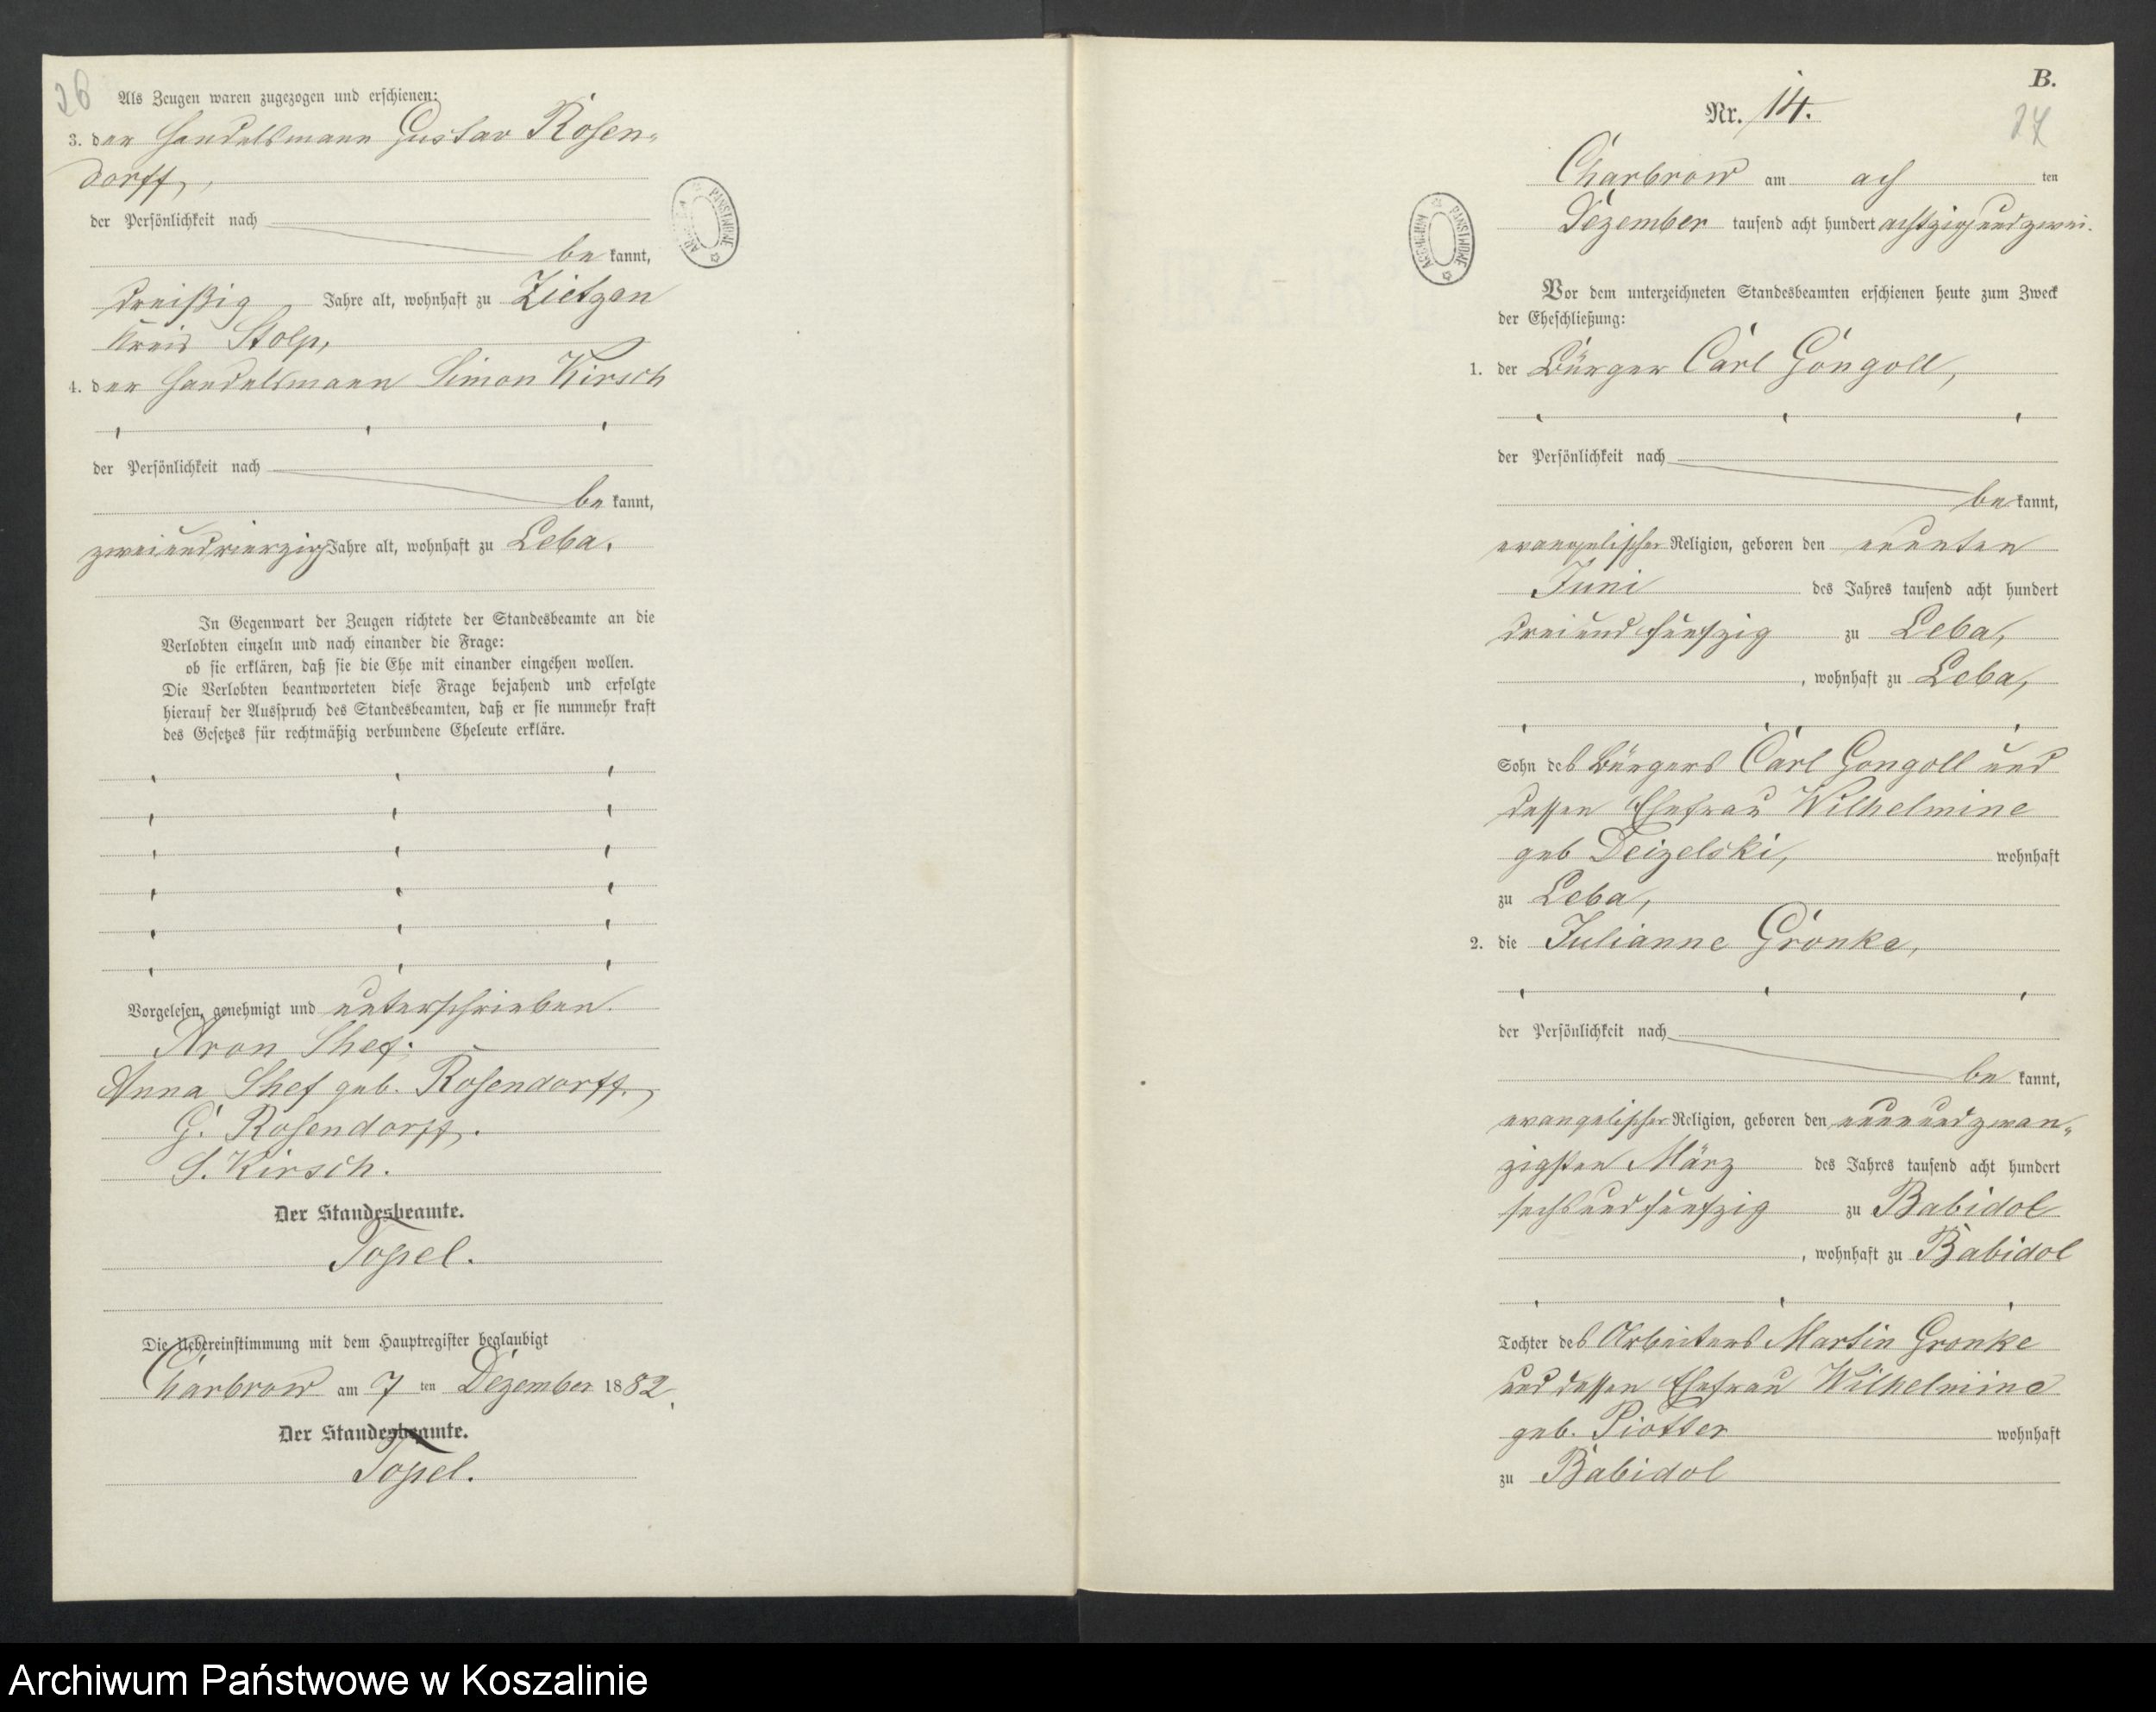 26
Als Zeugen waren zugezogen und erschienen:
3. der Handelsmann Gustav Rosen-
dorff,
der Persönlichkeit nach
be kannt,
dreißig Jahre alt, wohnhaft zu Zietzen
Kreis Stolp,
4. der Handelsmann Simon Kirsch
der Persönlichkeit nach
be kannt,
zweiundvierzig Jahre alt, wohnhaft zu Leba.
In Gegenwart der Zeugen richtete der Standesbeamte an die
Verlobten einzeln und nach einander die Frage:
ob sie erklären, daß sie die Ehe mit einander eingehen wollen.
Die Verlobten beantworteten diese Frage bejahend und erfolgte
hierauf der Ausspruch des Standesbeamten, daß er sie nunmehr kraft
des Gesetzes für rechtmäßig verbundene Eheleute erkläre.
Vorgelesen, genehmigt und unterschrieben.
Aron Shef.
Anna Shef geb. Rosendorff.
G. Rosendorff.
S. Kirsch.
Der Standesbeamte.
Topel.
Die Uebereinstimmung mit dem Hauptregister beglaubigt
Charbrow am 7 ten Dezember 1882.
Der Standesbeamte.
Topel.
ARCHIWUM PAŃSTWOWE
B.
Nr. 14.
27
Charbrow am ach ten
Dezember tausend acht hundert achtzig und zwei.
ARCHIWUM PAŃSTWOWE
Vor dem unterzeichneten Standesbeamten erschienen heute zum Zweck
der Eheschließung:
1. der Bürger Carl Gongoll,
der Persönlichkeit nach
be kannt,
evangelischer Religion, geboren den neunten
Juni des Jahres tausend acht hundert
dreiundfünfzig zu Leba,
, wohnhaft zu Leba,
Sohn des Bürgers Carl Gongoll und
dessen Ehefrau Wilhelmine
geb Deizelski, wohnhaft
zu Leba,
2. die Julianne Gronke,
der Persönlichkeit nach
be kannt,
evangelischer Religion, geboren den neunundzwan-
zigsten März des Jahres tausend acht hundert
sechsundfünfzig zu Babidol
, wohnhaft zu Babidol
Tochter des Arbeiters Martin Gronke
und dessen Ehefrau Wilhelmine
geb. Piotter wohnhaft
zu Babidol
Archiwum Państwowe w Koszalinie